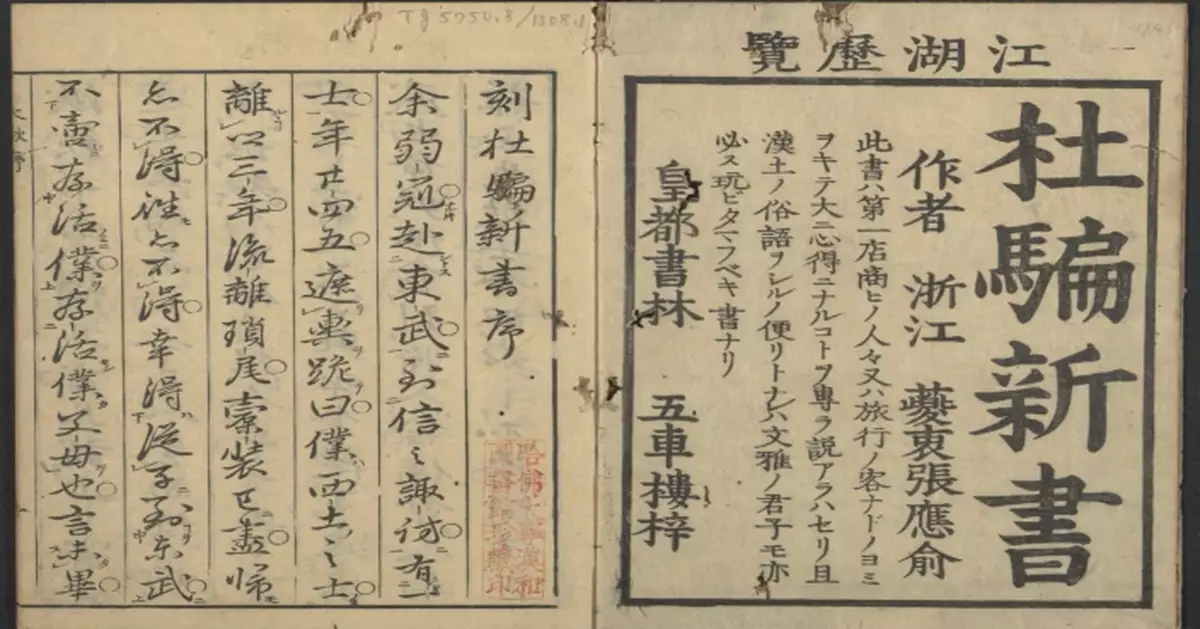 江湖歷覽
杜騙新書
作者 浙江 夔衷張應俞
此書ハ第一店商ヒノ人々又ハ旅行ノ客ナドノヨミ
ヲキテ大ニ心得ニナルコトヲ專ラ説アラハセリ且
漢土ノ俗語ヲシルノ便リトナレハ文雅ノ君子モ亦
必ス玩ビタマフベキ書ナリ
皇都書林 五車樓梓
刻杜騙新書序
余弱冠赴東武到信之諏訪有一
士年廿四五遮輿跪曰僕西土之士
離 三年流離瑣尾橐裝已盡歸
亦不得往亦不得幸得從子到東武
不啻存活僕存活僕父母也言未畢
哈佛大學漢和
圖書館珍藏印
TJ 5750.8/1308.1